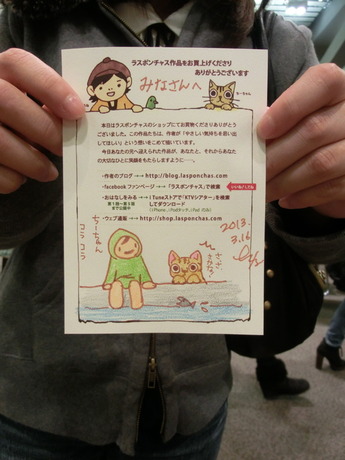 ラスポンチャス作品をお買上げくださり
ありがとうございます
みなさんへ
本日はラスポンチャスのショップにてお買物くださりありがとう
ございました。この作品たちは、作者が「やさしい気持ちを思い出
してほしい」という想いをこめて描いています。
今日あなたの方へ迎えられた作品が、あなたと、それからあなた
の大切なひとに笑顔をもたらしますように……。
・作者のブログ →→ http://blog.lasponchas.com
・facebook ファンページ →→「ラスポンチャス」で検索
・おはなしをみる →→ iTuneストアで「KTVシアター」を検索
してダウンロード
・ウェブ通販 →→ http://shop.lasponchas.com
2013.
3.16
ちーちゃん
コラコラ
さ、さ
さかな!